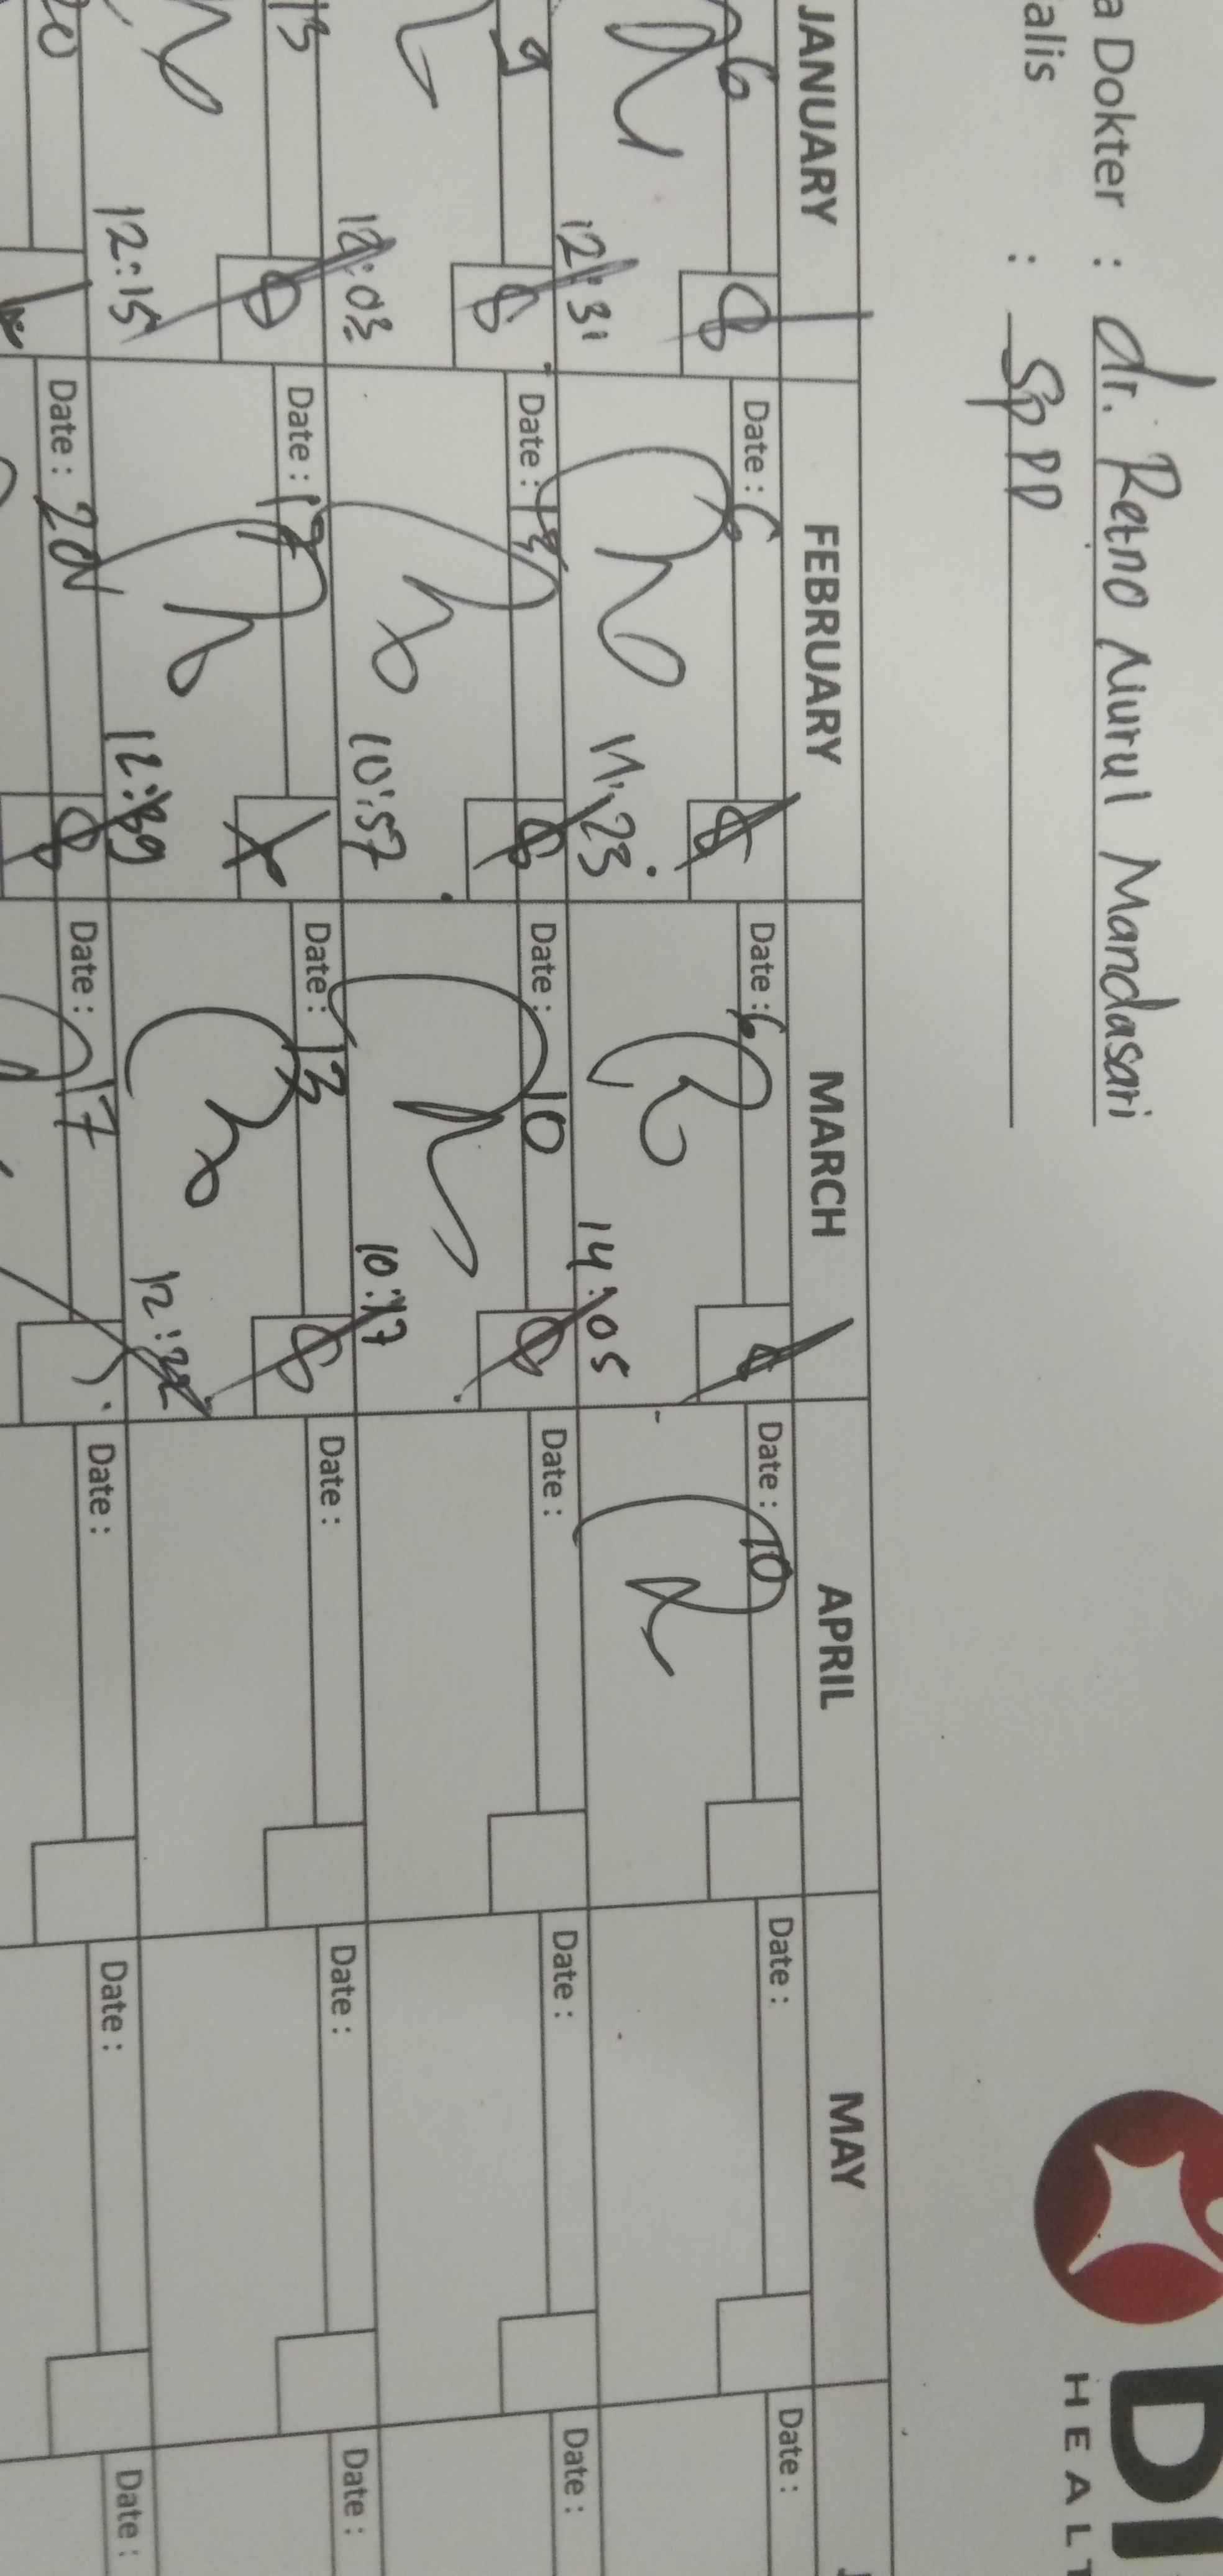 a Dokter : dr. Retno Nurul Mandasari
alis : Sp PD
DI
HEALT
JANUARY FEBRUARY MARCH APRIL MAY J
6 8 Date : 6 8 Date : 6 Date : 10 Date : Date :
12:31 11.23 14:05
9 8 Date : 13 8 Date : 10 8 Date : Date : Date :
12:03 10:57 10:17
13 8 Date : Date : 13 8 Date : Date : Date :
12:15 12:39 12:22
20 Date : 20 8 Date : 17 Date : Date : Date :